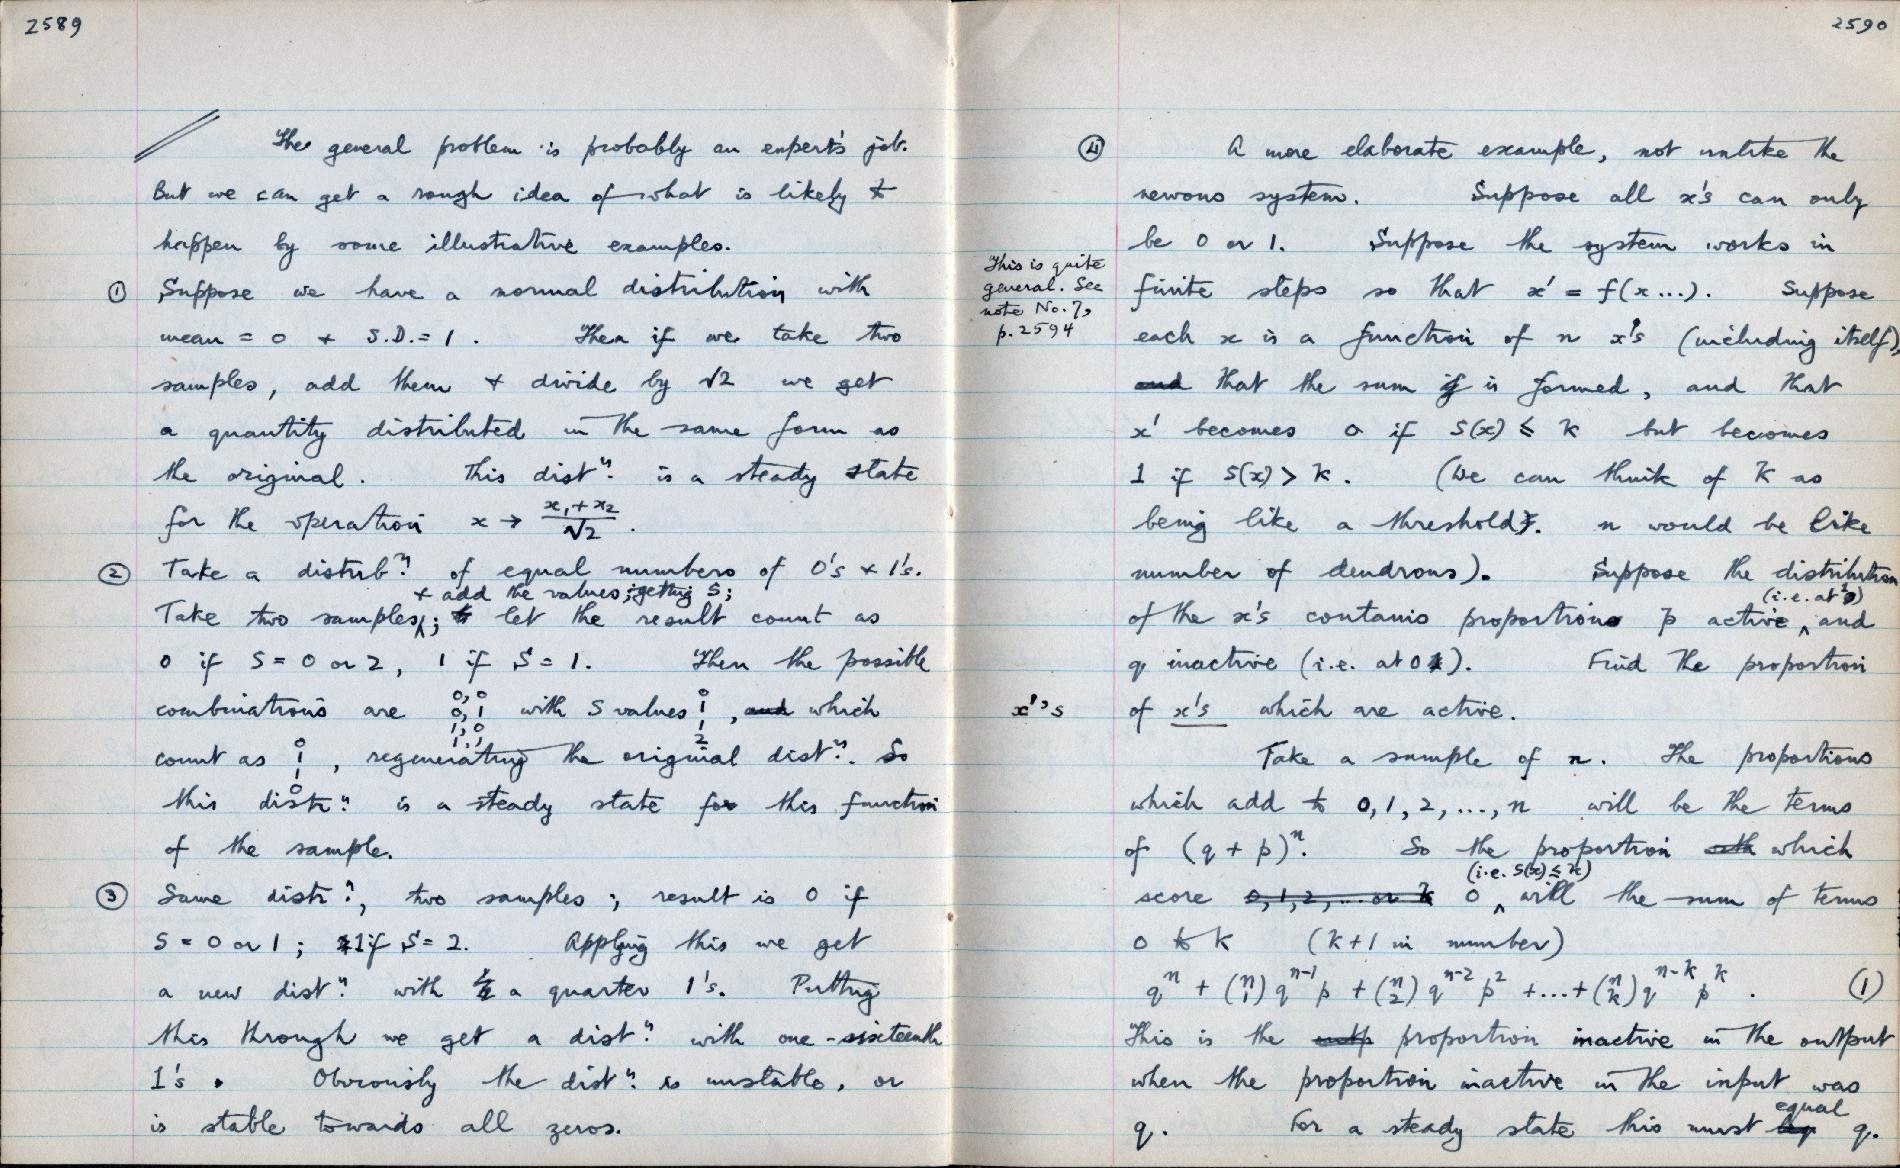 2589
The general problem is probably an expert's job.
But we can get a rough idea of what is likely to
happen by some illustrative examples.
① Suppose we have a normal distribution with
mean = 0 + S.D. = 1. Then if we take two
samples, add them + divide by √2 we get
a quantity distributed in the same form as
the original. This distⁿ. is a steady state
for the operation x → (x₁ + x₂)/√2.
② Take a distribⁿ. of equal numbers of 0's + 1's.
+ add the values; getting S;
Take two samples; let the result count as
0 if S = 0 or 2, 1 if S = 1. Then the possible
combinations are 0,0 0,1 1,0 1,1 with S values 0 1 1 2, and which
count as 0 1 1 0, regenerating the original distⁿ. So
this distrⁿ. is a steady state for this function
of the sample.
③ Same distrⁿ., two samples; result is 0 if
S = 0 or 1; 1 if S = 2. Applying this we get
a new distⁿ. with a quarter 1's. Putting
this through we get a distⁿ. with one-sixteenth
1's. Obviously the distⁿ. is unstable, or
is stable towards all zeros.
2590
④ A more elaborate example, not unlike the
nervous system. Suppose all x's can only
be 0 or 1. Suppose the system works in
This is quite
general. See
note No. 7,
p. 2594
finite steps so that x' = f(x...). Suppose
each x is a function of n x's (including itself),
and that the sum is formed, and that
x' becomes 0 if S(x) ≤ k but becomes
1 if S(x) > k. (We can think of k as
being like a threshold. n would be like
number of dendrons). Suppose the distribution
(i.e. at 1)
of the x's contains proportions p active, and
q inactive (i.e. at 0). Find the proportion
x''s
of x's which are active.
Take a sample of n. The proportions
which add to 0, 1, 2, ..., n will be the terms
of (q + p)ⁿ. So the proportion which
(i.e. S(x) ≤ k)
score 0, 1, 2, ... or k 0 will the sum of terms
0 to k (k+1 in number)
qⁿ + (n 1) qⁿ⁻¹ p + (n 2) qⁿ⁻² p² + ... + (n k) qⁿ⁻ᵏ pᵏ. (1)
This is the proportion inactive in the output
when the proportion inactive in the input was
q. For a steady state this must equal q.